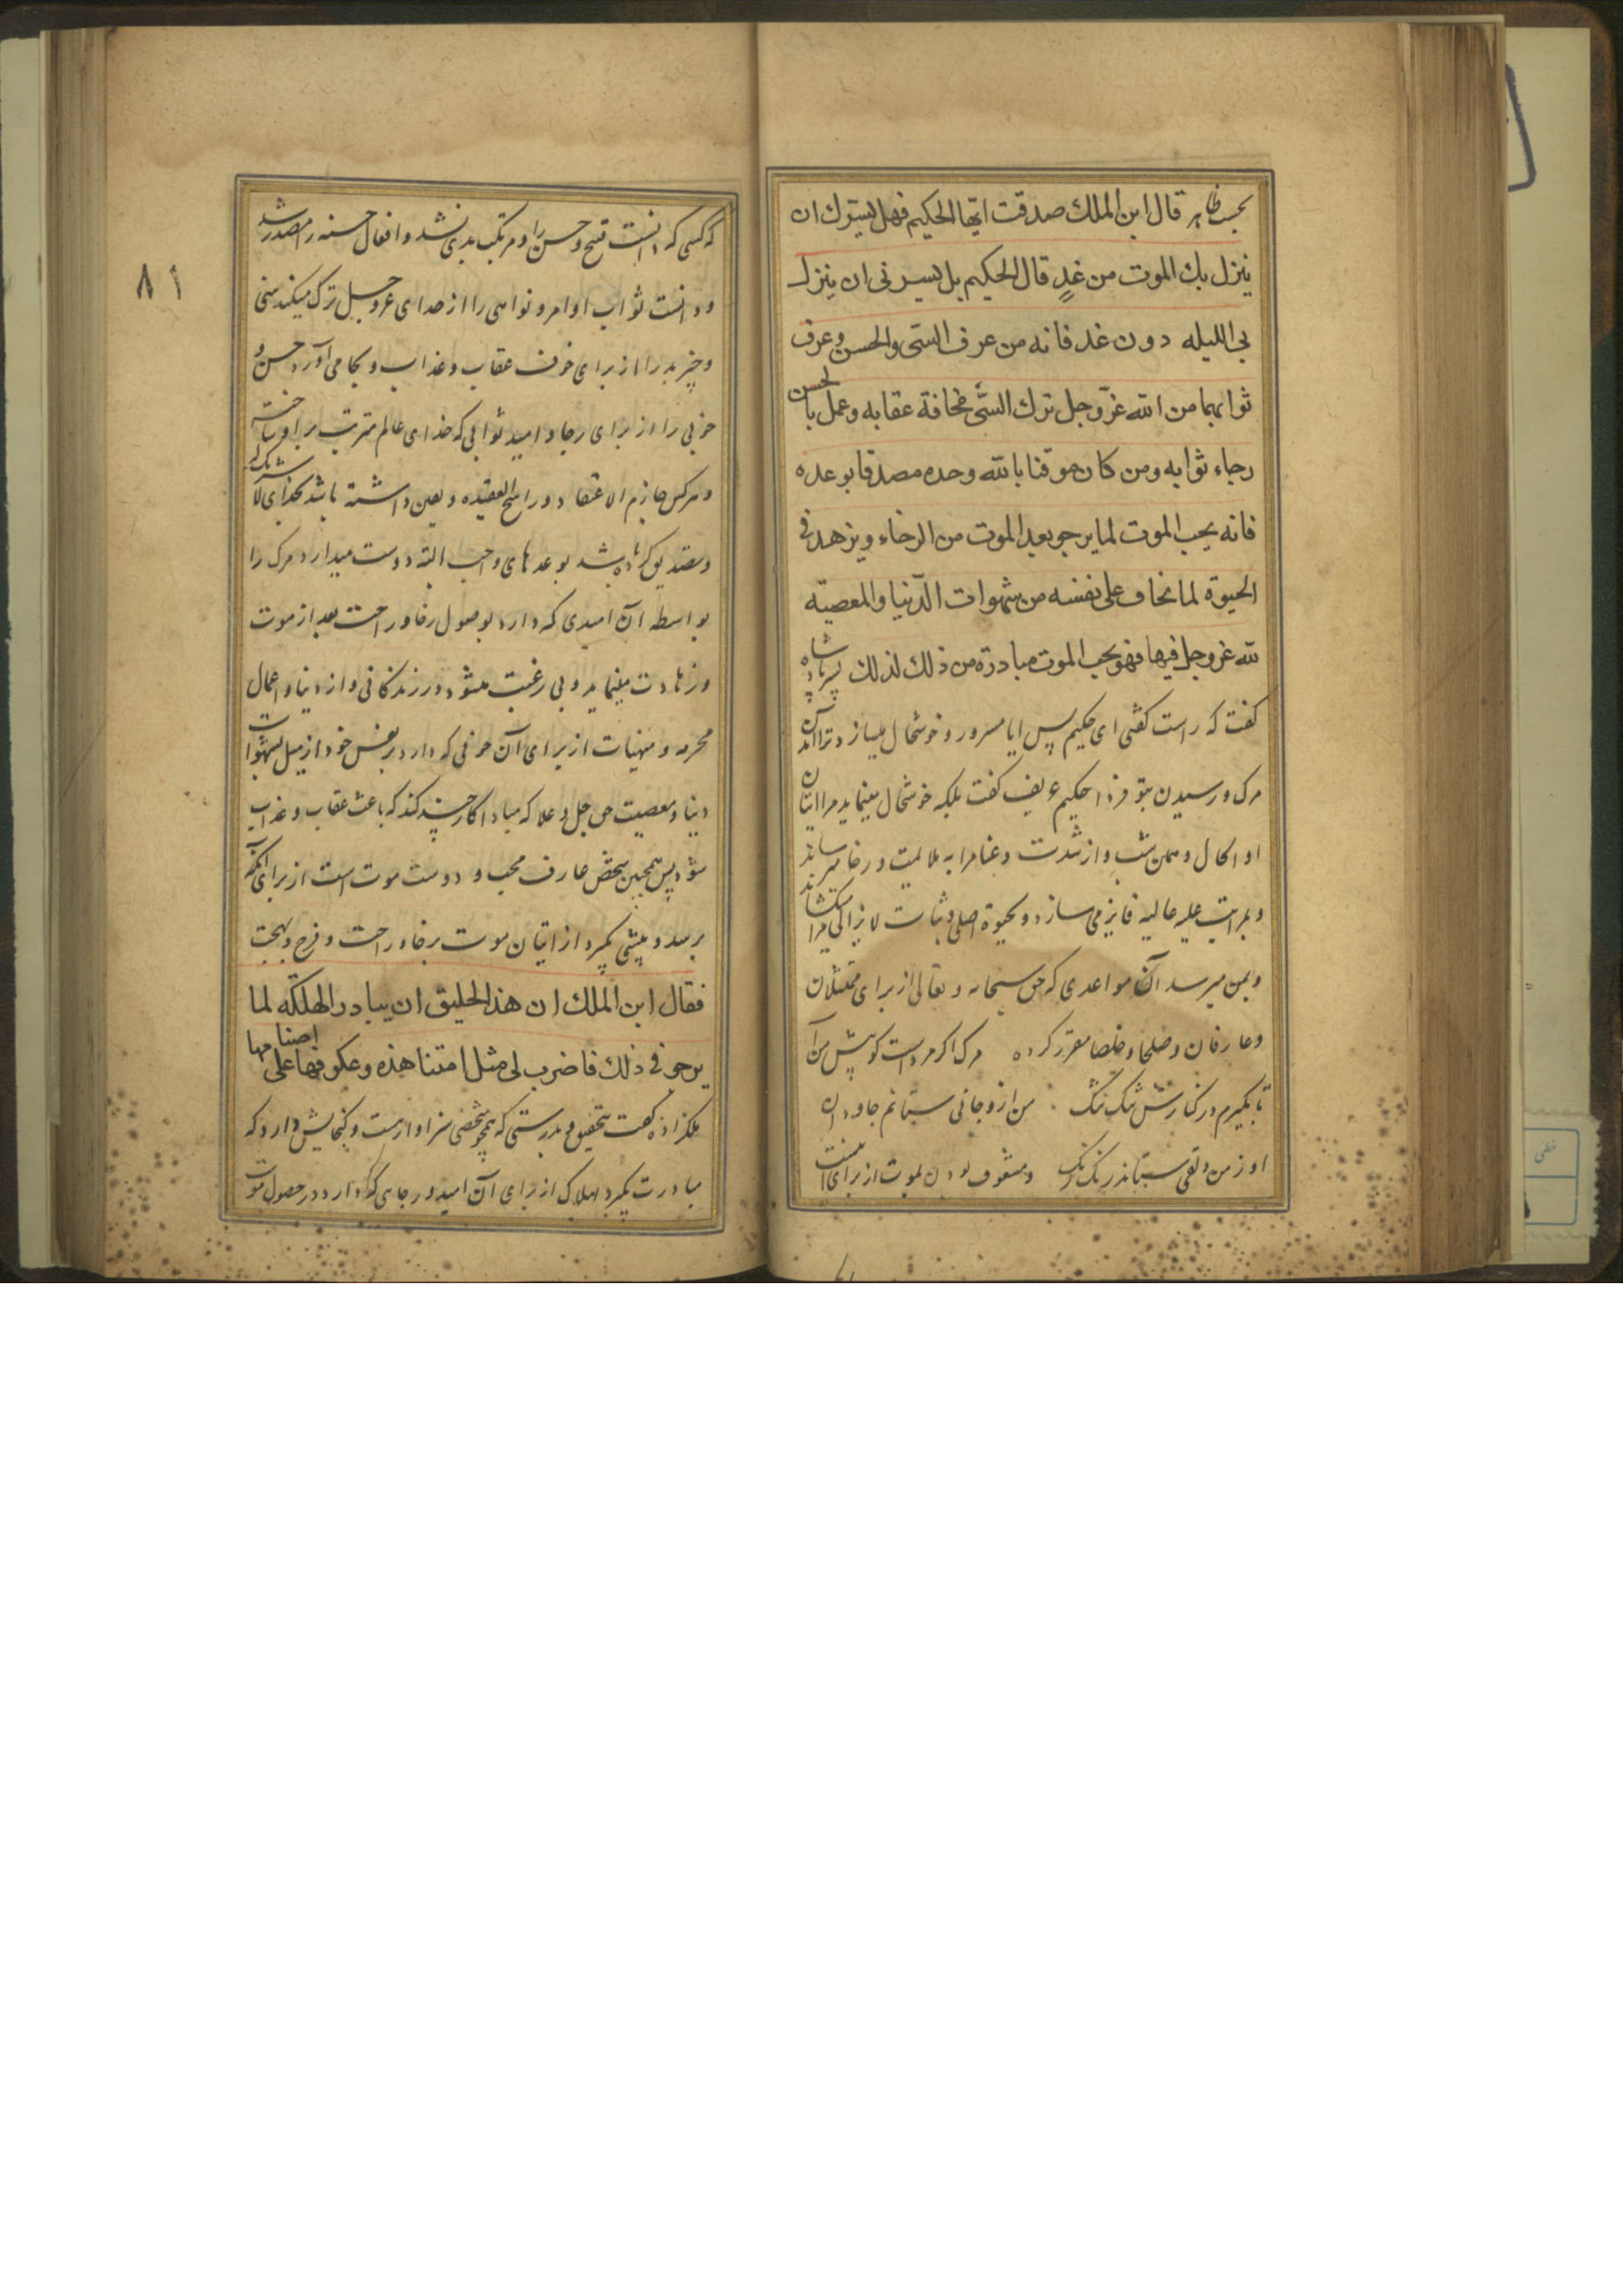 بحسب ظاهر قال ابن الملك صدقت ایها الحکیم فهل یسرّك ان
ینزل بك الموت من غدٍ قال الحکیم بل یسرنی ان ینزل
بی اللیله دون غد فانه من عرف السّیّ والحسن وعرف
ثوابهما من الله عزّ وجل ترك السّیّ مخافة عقابه وعمل بالحسن
رجاء ثوابه ومن کان موقنا بالله وحده مصدقا بوعده
فانه یحب الموت لما یرجو بعد الموت من الرخاء ویزهد فی
الحیوة لما یخاف علی نفسه من شهوات الدّنیا والمعصیّه
لله عزوجل فیها فهو یحب الموت مبادرة من ذلك لذلك پس پادشاه
کفت که راست کفتی ای حکیم پس ایا مسرور و خوشحال میسازد ترا آمدن
مرک و رسیدن بتو فردا حکیم کفت بلکه خوشحال مینماید مرا اتیان
او الحال و همین شب و از شدت و عنا مرا به ملایمت و رخا میرساند
و بمراتب علیه عالیه فایز می سازد و بحیوة اصلی و ثبات لایزالی میکشاند مرا
و بمن میرسد آن مواعدی که حق سبحانه و تعالی از برای ممتثلان
و عارفان و صلحا و خلصا مقرر کرده مرک اکر مردست کو پیش من آ
تا بکیرم در کنارش تنک تنک من ازو جانی ستانم جاودان
او ز من دلقی ستاند رنک رنک و مشعوف بودن بموت از برای آنست
۸۱
که کسی که دانست قبح و حسن را و مرتکب بدی نشد و افعال حسنه را مصدر شد
و دانست ثواب اوامر و نواهی را از خدای عزوجل ترک میکند سیّ
و چیز بد را از برای خوف عقاب و عذاب و بجا می آورد حسن و
خوبی را از برای رجا و امید ثوابی که خدای عالم مترتب بر او ساخته
و هرکس جازم الاعتقاد و راسخ العقیده و یقین داشته باشد بخدای لاشریک له
و تصدیق کرده باشد بوعدهای واجب البته دوست میدارد مرک را
بواسطه آن امیدی که دارد بوصول رخا و راحت بعد از موت
و زهادت مینماید و بی رغبت میشود در زندکانی و از دنیا و اعمال
محرمه و منهیات از برای آن خوفی که دارد بر نفس خود از میل بشهوات
دنیا و معصیت حق جل و علا که مبادا کار چند کند که باعث عقاب و عذاب
شود پس همچنین شخص عارف محب و دوست موت است از برای آنکه
برسد و پیشی کیرد از اتیان موت برخا و راحت و فرح و بهجت
فقال ابن الملك ان هذا لخلیق ان یبادر الهلکه لما
یرجو فی ذلك فاضرب لی مثل امتنا هذه وعکوفها علی اصنامها
ملکزاده کفت بتحقیق و بدرستی که همچو شخصی سزاوارست و کنجایش دارد که
مبادرت کیرد بهلاک از برای آن امید و رجای که دارد در حصول موت